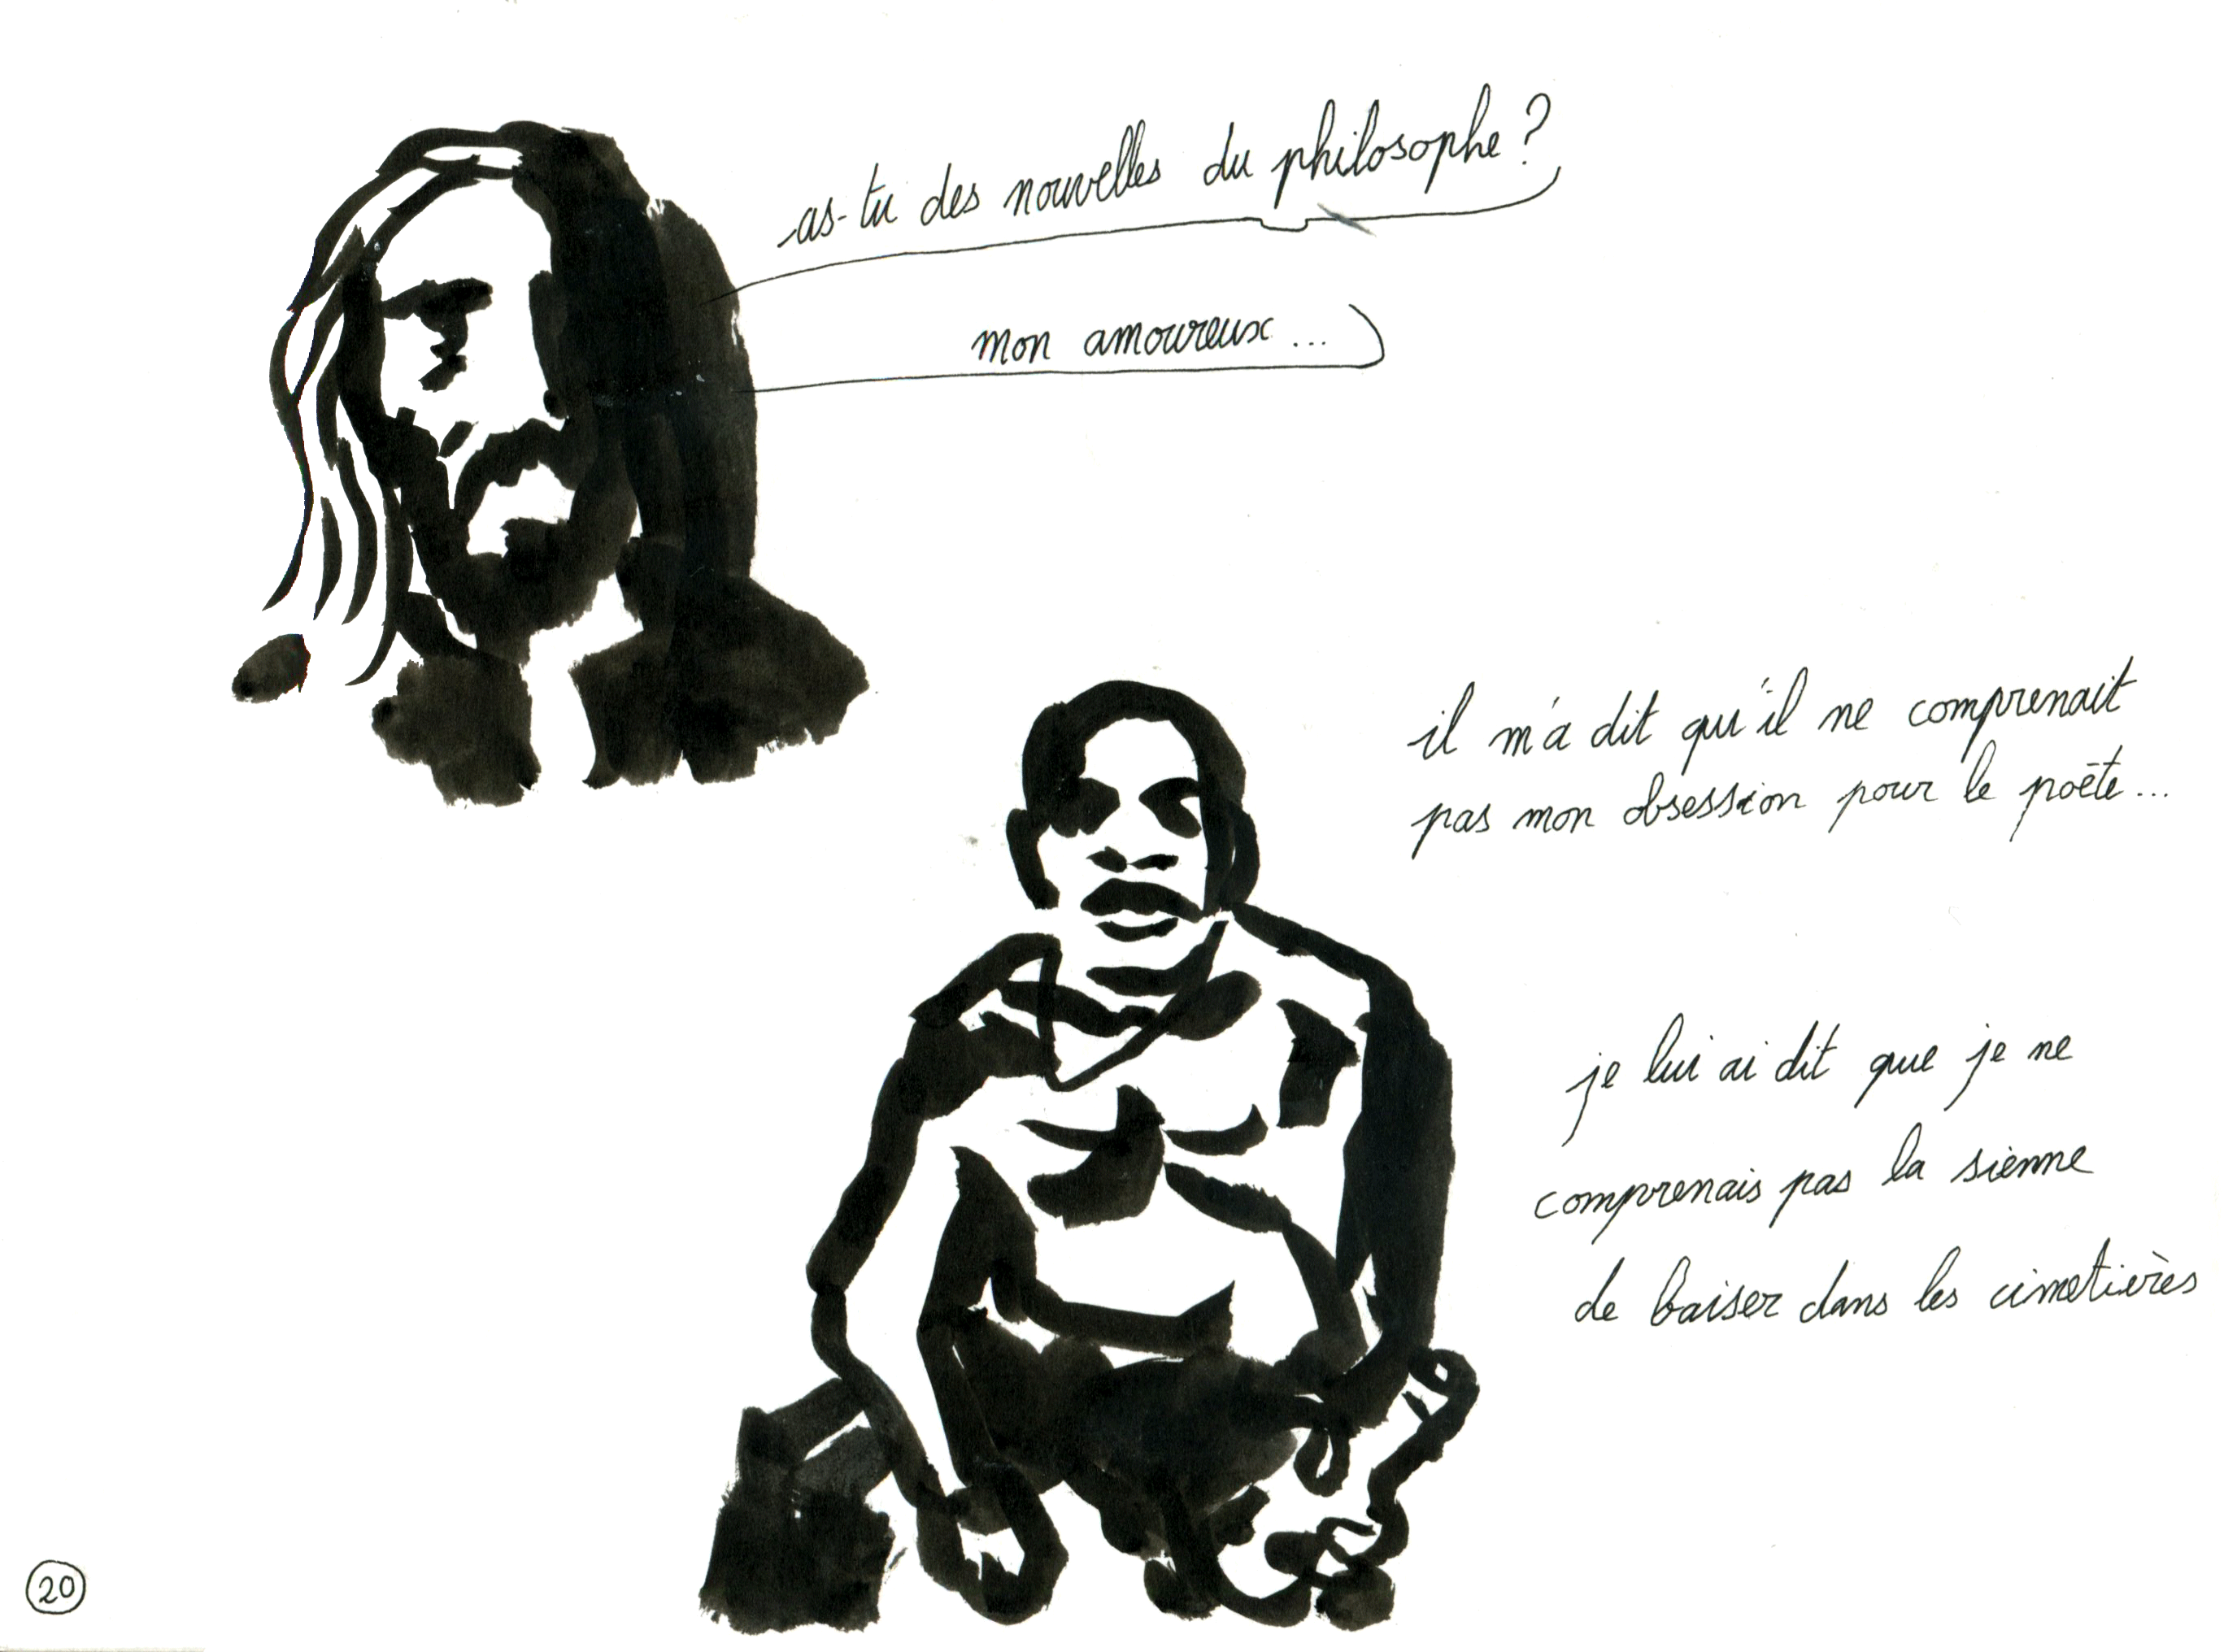 as-tu des nouvelles du philosophe ?
mon amoureux...
il m'a dit qu'il ne comprenait
pas mon obsession pour le poëte...
je lui ai dit que je ne
comprenais pas la sienne
de baiser dans les cimetières
20